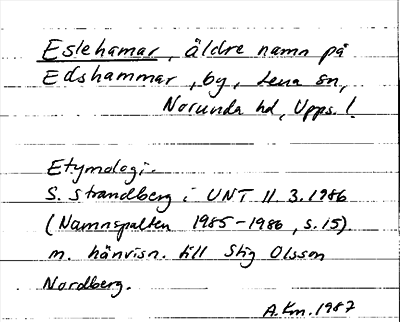 Eslehamar, äldre namn på
Edshammar, by, Lena sn,
Norunda hd, Upps. l.
Etymologi.
S. Strandberg i UNT 11 3.1986
(Namnspalten 1985-1986, s.15).
m. hänvisn. till Stig Olsson
Nordberg.
A.Km. 1987